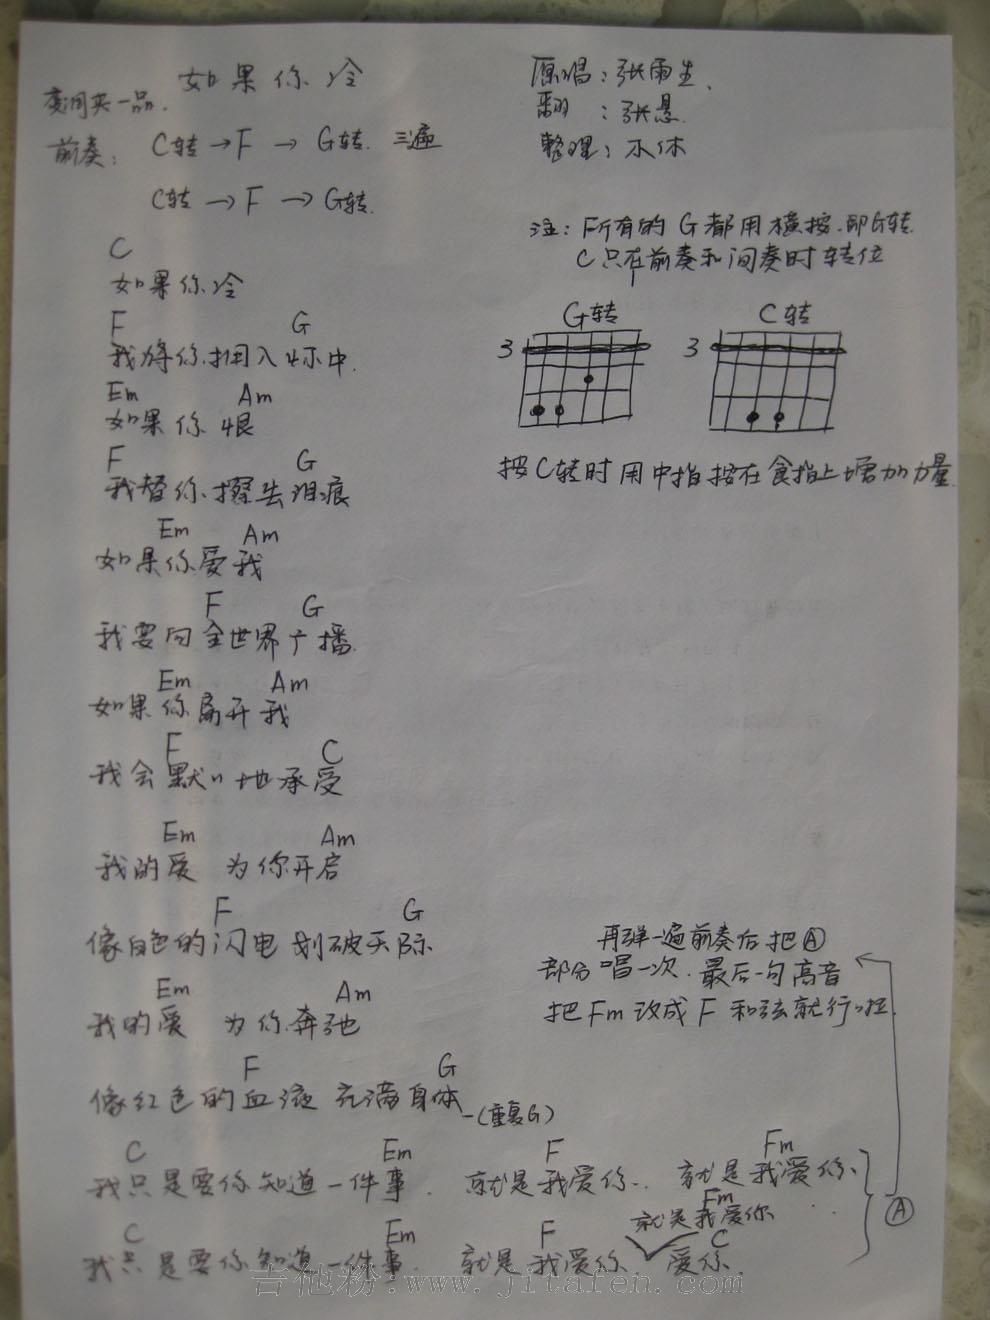 如果你冷
变调夹一品.
前奏: C转→F → G转. 三遍
C转 → F → G转.
原唱:张雨生.
翻 :张悬.
整理:木休
注: 所有的 G 都用横按.即G转.
C 只在前奏和间奏时转位
G转
3
C转
3
按C转时用中指按在食指上增加力量.
C
如果你冷
F G
我将你拥入怀中.
Em Am
如果你恨
F G
我替你擦去泪痕
Em Am
如果你爱我
F G
我要向全世界广播.
Em Am
如果你离开我
F C
我会默〃地承受
Em Am
我的爱 为你开启
F G
像白色的闪电 划破天际
Em Am
我的爱 为你奔驰
F G
像红色的血液 充满身体 -(重复G)
再弹一遍前奏后把Ⓐ
部分唱一次.最后一句高音
把Fm改成F和弦就行啦.
C Em F Fm
我只是要你知道一件事. 就是我爱你.. 就是我爱你..
Fm
就是我爱你
C Em F C
我只是要你知道一件事. 就是我爱你 爱你.
Ⓐ
吉他粉:www.jitafen.com